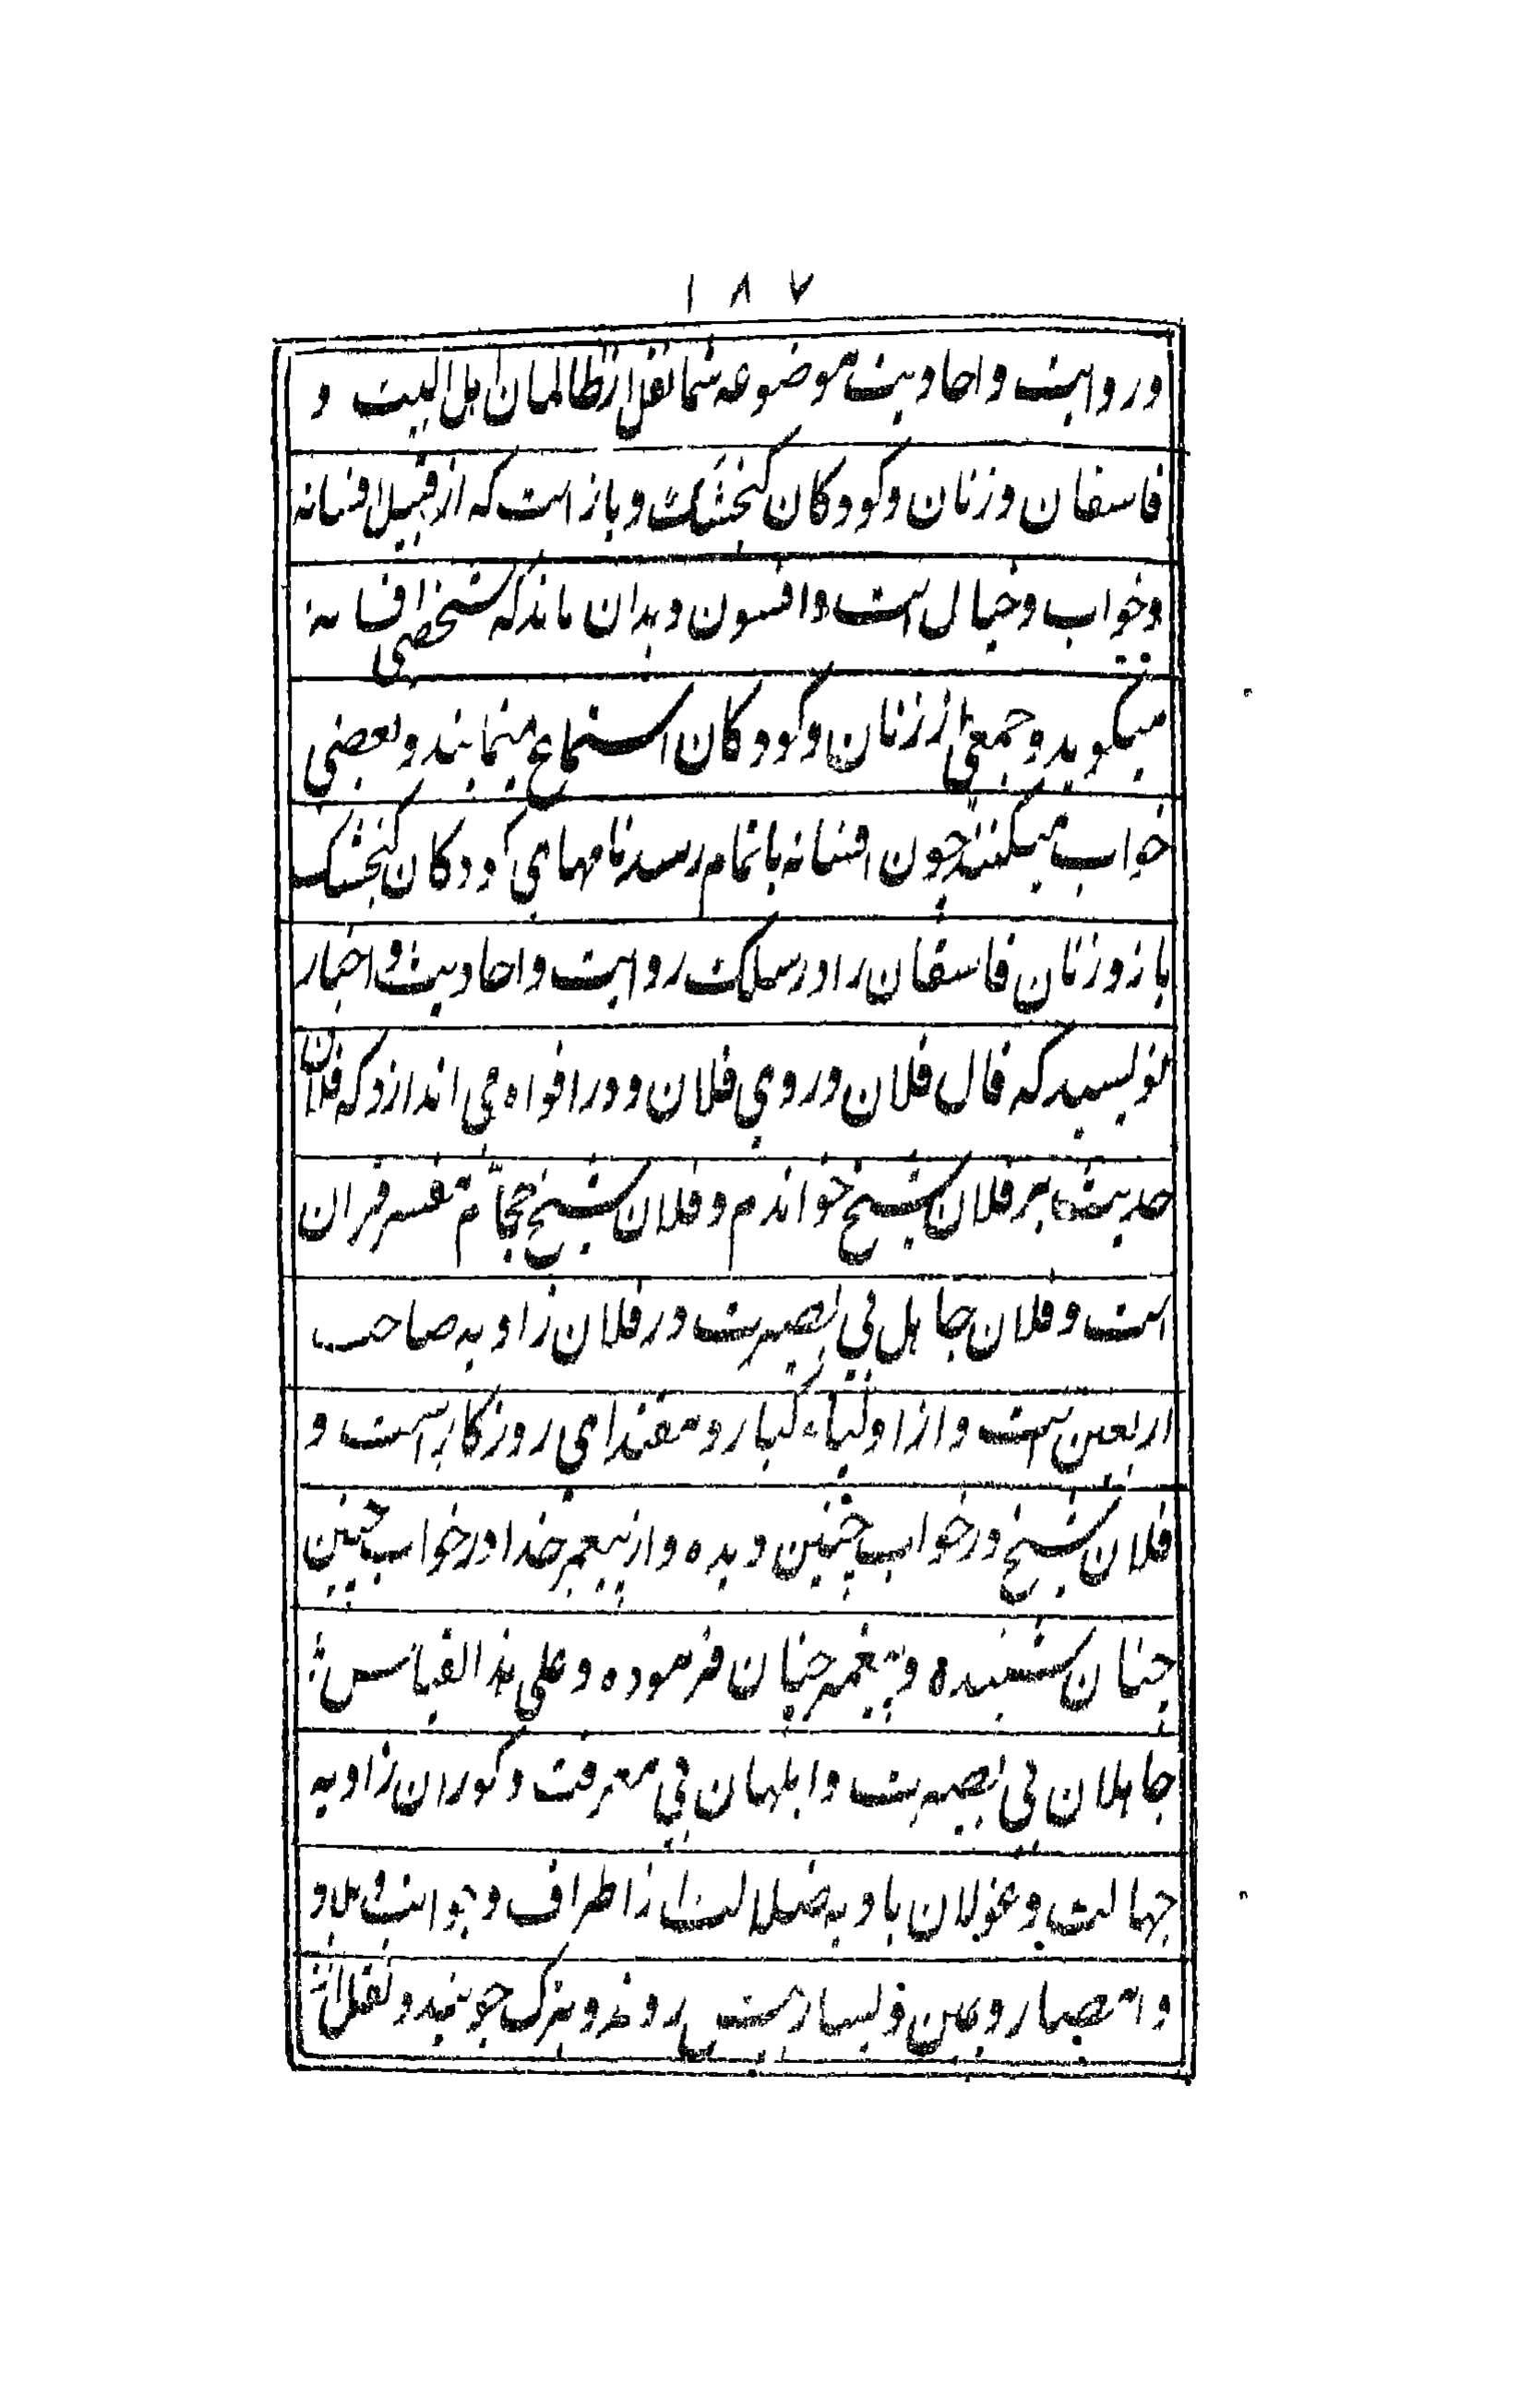 ۱۸۷
و روایت و احادیث موضوعه شما نقل از ظالمان اهل البیت و
فاسقان و زنان و کودکان کنجشک و باز است که از قبیل افسانه
و خواب و خیال است و افسون و بدان ماند که شخصی افسانه
میکوید و جمعی از زنان و کودکان استماع مینمایند و بعضی
خواب میکنند چون افسانه باتمام رسد نامهای کودکان کنجشک
باز و زنان فاسقان را در سلک روایت و احادیث و اخبار
نویسید که قال فلان و روی فلان و در افواه می اندازد که فلان
حدیث بر فلان شیخ خواندم و فلان شیخ حجام مفسر قران
است و فلان جاهل بی بصیرت در فلان زاویه صاحب
اربعین است و از اولیاء کبار و مقتدای روزکار است و
فلان شیخ در خواب چنین دیده و از پیغمبر خدا در خواب چنین
چنان شنیده و پیغمبر چنان فرموده و علی هذا القیاس
جاهلان بی بصیرت و ابلهان بی معرفت و کوران زاویه
جهالت و غولان بادیه ضلالت از اطراف و جوانب و بلاد
و امصار و یمین و یسار روند و تبرک جویند و نقل